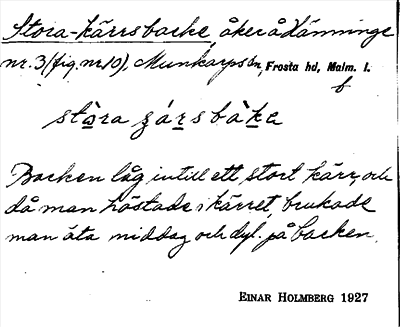 Stora-kärrsbacke, åker å Hämninge
nr. 3 (fig. nr 10), Munkarps sn, Frosta hd, Malm. l.
f
stòra ʒárs bàke
Backen låg intill ett stort kärr, och
då man höstade i kärret, brukade
man äta middag och dyl. på backen.
EINAR HOLMBERG 1927